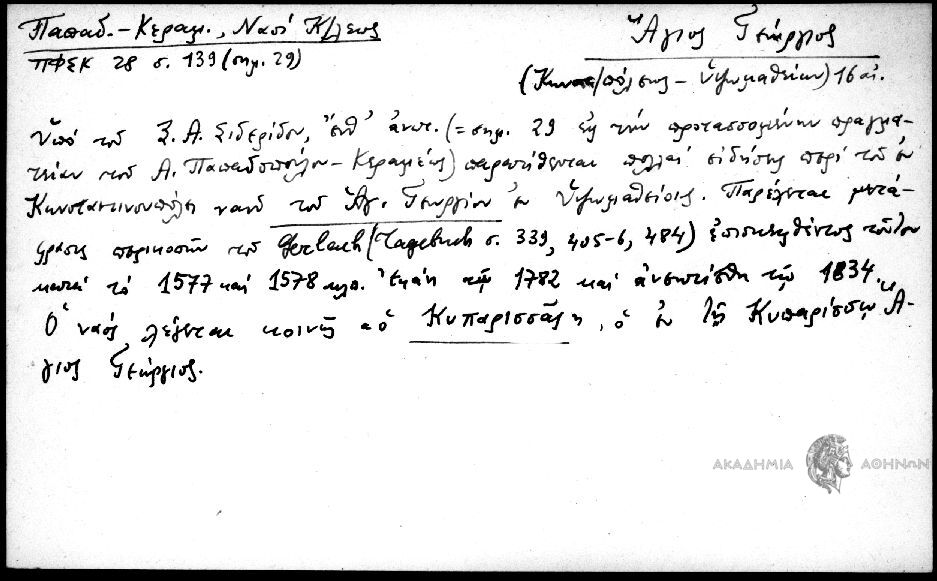 Παπαδ.-Κεραμ., Ναοί Κ/λεως
ΠΦΣΚ 28 σ. 139 (σημ. 29)
Ἅγιος Γεώργιος
(Κων/πόλεως - Ὑψωμαθείων) 16 αἰ.
Ὑπό τοῦ Ξ. Α. Σιδερίδου, ἔνθ' ἀνωτ. (= σημ. 29 εἰς τήν προτασσομένην πραγμα-
τείαν τοῦ Α. Παπαδοπούλου-Κεραμέως) παρατίθενται πολλαί εἰδήσεις περί τοῦ ἐν
Κωνσταντινουπόλει ναοῦ τοῦ Ἁγ. Γεωργίου ἐν Ὑψωμαθείοις. Παρέχεται μετά-
φρασις περικοπῶν τοῦ Gerlach (Tagebuch σ. 339, 405-6, 484) ἐπισκεφθέντος τοῦτον
κατά τό 1577 καί 1578 κλπ. Ἐκάη τῷ 1782 καί ἀνεκτίσθη τῷ 1834.
Ὁ ναός λέγεται κοινῶς "ὁ Κυπαρισσᾶς", ὁ ἐν τῇ Κυπαρίσσῳ Ἅ-
γιος Γεώργιος.
ΑΚΑΔΗΜΙΑ ΑΘΗΝΩΝ